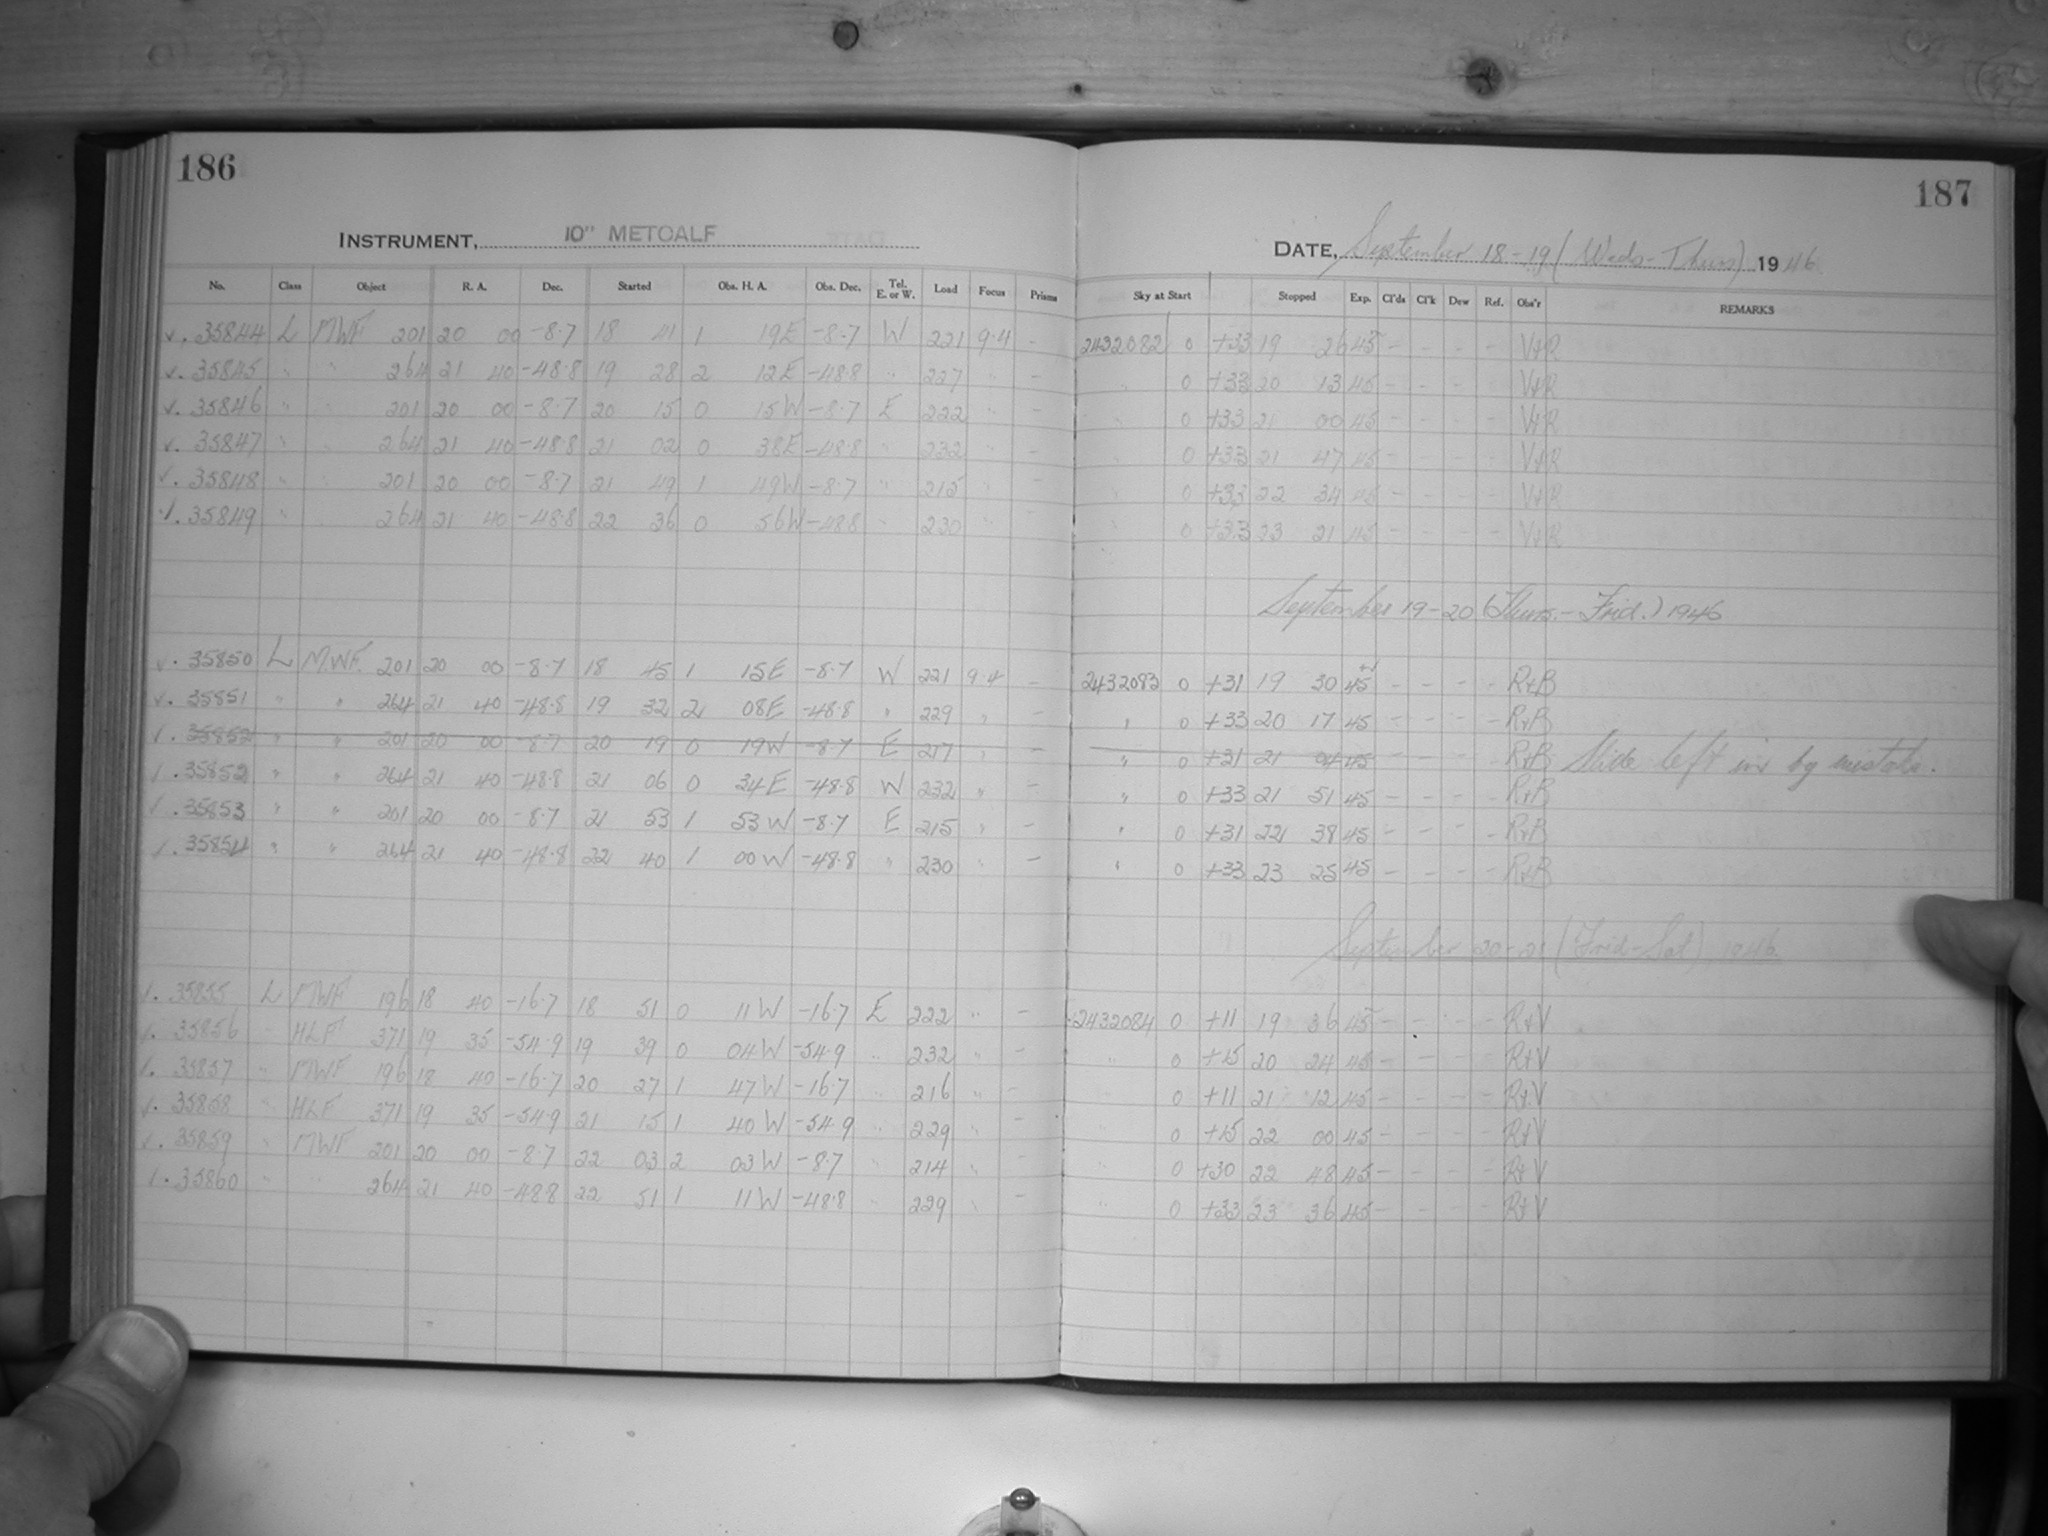 186
187
INSTRUMENT, 10" METCALF
DATE, September 18-19 (Weds-Thurs) 1946
No. Class Object R. A. Dec. Started Obs. H. A. Obs. Dec. Tel. E. or W. Load Focus Prisms Sky at Start Stopped Exp. Cl'ds Cl'k Dew Ref. Obs'r REMARKS
v. 35844 L MWF 201 20 00 -8.7 18 41 1 19E -8.7 W 221 9.4 - 2432082 0 +33 19 26 45 - - - - V+R
v. 35845 " " 264 21 40 -48.8 19 28 2 12E -48.8 " 227 " - " 0 +33 20 13 45 - - - - V+R
v. 35846 " " 201 20 00 -8.7 20 15 0 15W -8.7 E 222 " - " 0 +33 21 00 45 - - - - V+R
v. 35847 " " 264 21 40 -48.8 21 02 0 38E -48.8 " 232 " - " 0 +33 21 47 45 - - - - V+R
v. 35848 " " 201 20 00 -8.7 21 49 1 49W -8.7 " 215 " - " 0 +33 22 34 45 - - - - V+R
1. 35849 " " 264 21 40 -48.8 22 36 0 56W -48.8 " 230 " - " 0 +33 23 21 45 - - - - V+R
September 19-20 (Thurs.-Frid.) 1946
v. 35850 L M.W.F. 201 20 00 -8.7 18 45 1 15E -8.7 W 221 9.4 - 2432083 0 +31 19 30 45 - - - - R+B
v. 35851 " " 264 21 40 -48.8 19 32 2 08E -48.8 " 229 " - " 0 +33 20 17 45 - - - - R+B
v. 35852 " " 201 20 00 -8.7 20 19 0 19W -8.7 E 217 " - " 0 +31 21 04 45 - - - - R+B Slide left in by mistake.
1. 35852 " " 264 21 40 -48.8 21 06 0 34E -48.8 W 232 " - " 0 +33 21 51 45 - - - - R+B
1. 35853 " " 201 20 00 -8.7 21 53 1 53W -8.7 E 215 " - " 0 +31 22 38 45 - - - - R+B
1. 35854 " " 264 21 40 -48.8 22 40 1 00W -48.8 " 230 " - " 0 +33 23 25 45 - - - - R+B
September 20-21 (Frid-Sat) 1946
1. 35855 L MWF 196 18 40 -16.7 18 51 0 11W -16.7 E 222 " - 2432084 0 +11 19 36 45 - - - - R+V
1. 35856 " HLF 371 19 35 -54.9 19 39 0 04W -54.9 " 232 " - " 0 +15 20 24 45 - - - - R+V
1. 35857 " MWF 196 18 40 -16.7 20 27 1 47W -16.7 " 216 " - " 0 +11 21 12 45 - - - - R+V
v. 35858 " HLF 371 19 35 -54.9 21 15 1 40W -54.9 " 229 " - " 0 +15 22 00 45 - - - - R+V
v. 35859 " MWF 201 20 00 -8.7 22 03 2 03W -8.7 " 214 " - " 0 +30 22 48 45 - - - - R+V
1. 35860 " " 264 21 40 -48.8 22 51 1 11W -48.8 " 229 " - " 0 +33 23 36 45 - - - - R+V